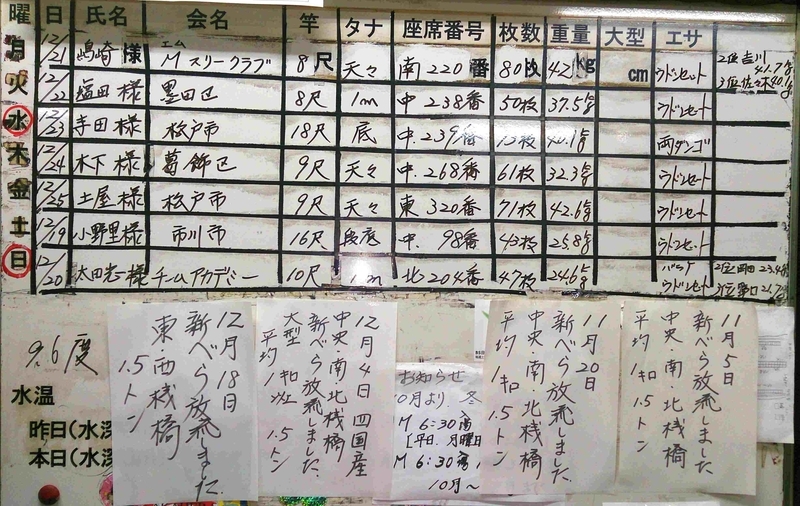 曜 日 氏名 会名 竿 タナ 座席番号 枚数 重量 大型 エサ
月 12/21 嶋崎様 Mスリークラブ 8尺 天々 南220番 80枚 42kg cm ウドンセット
2位吉川 41.7kg
3位佐々木40.1kg
火 12/22 塩田様 墨田区 8尺 1m 中238番 50枚 37.5kg ウドンセット
水 12/23 寺田様 松戸市 18尺 底 中.239番 40.1kg 両ダンゴ
木 12/24 木下様 葛飾区 9尺 天々 中.268番 61枚 32.3kg ウドンセット
金 12/25 土屋様 松戸市 9尺 天々 東320番 71枚 42.6kg ウドンセット
土 12/19 小野里様 市川市 16尺 段底 中.98番 43枚 25.8kg ウドンセット
日 12/20 太田 様 チームアカデミー 10尺 1m 北204番 47枚 24.6kg バラケ ウドンセット
2位岡田 23.4kg
3位野口 21.7kg
9.6度
水温
昨日(水深
本日(水深
12月18日
新べら放流しました
東西桟橋
1.5トン
12月4日 四国産
中央・南・北桟橋
新べら放流しました.
大型
平均1キロ 1.5トン
お知らせ
10月より、冬
M6:30
[平日.月曜日
M6:30
10月〜
11月20日
新べら放流しました.
中央・南・北桟橋
平均1キロ 1.5トン
11月5日
新べら放流しました
中央・南・北桟橋
平均1キロ 1.5トン